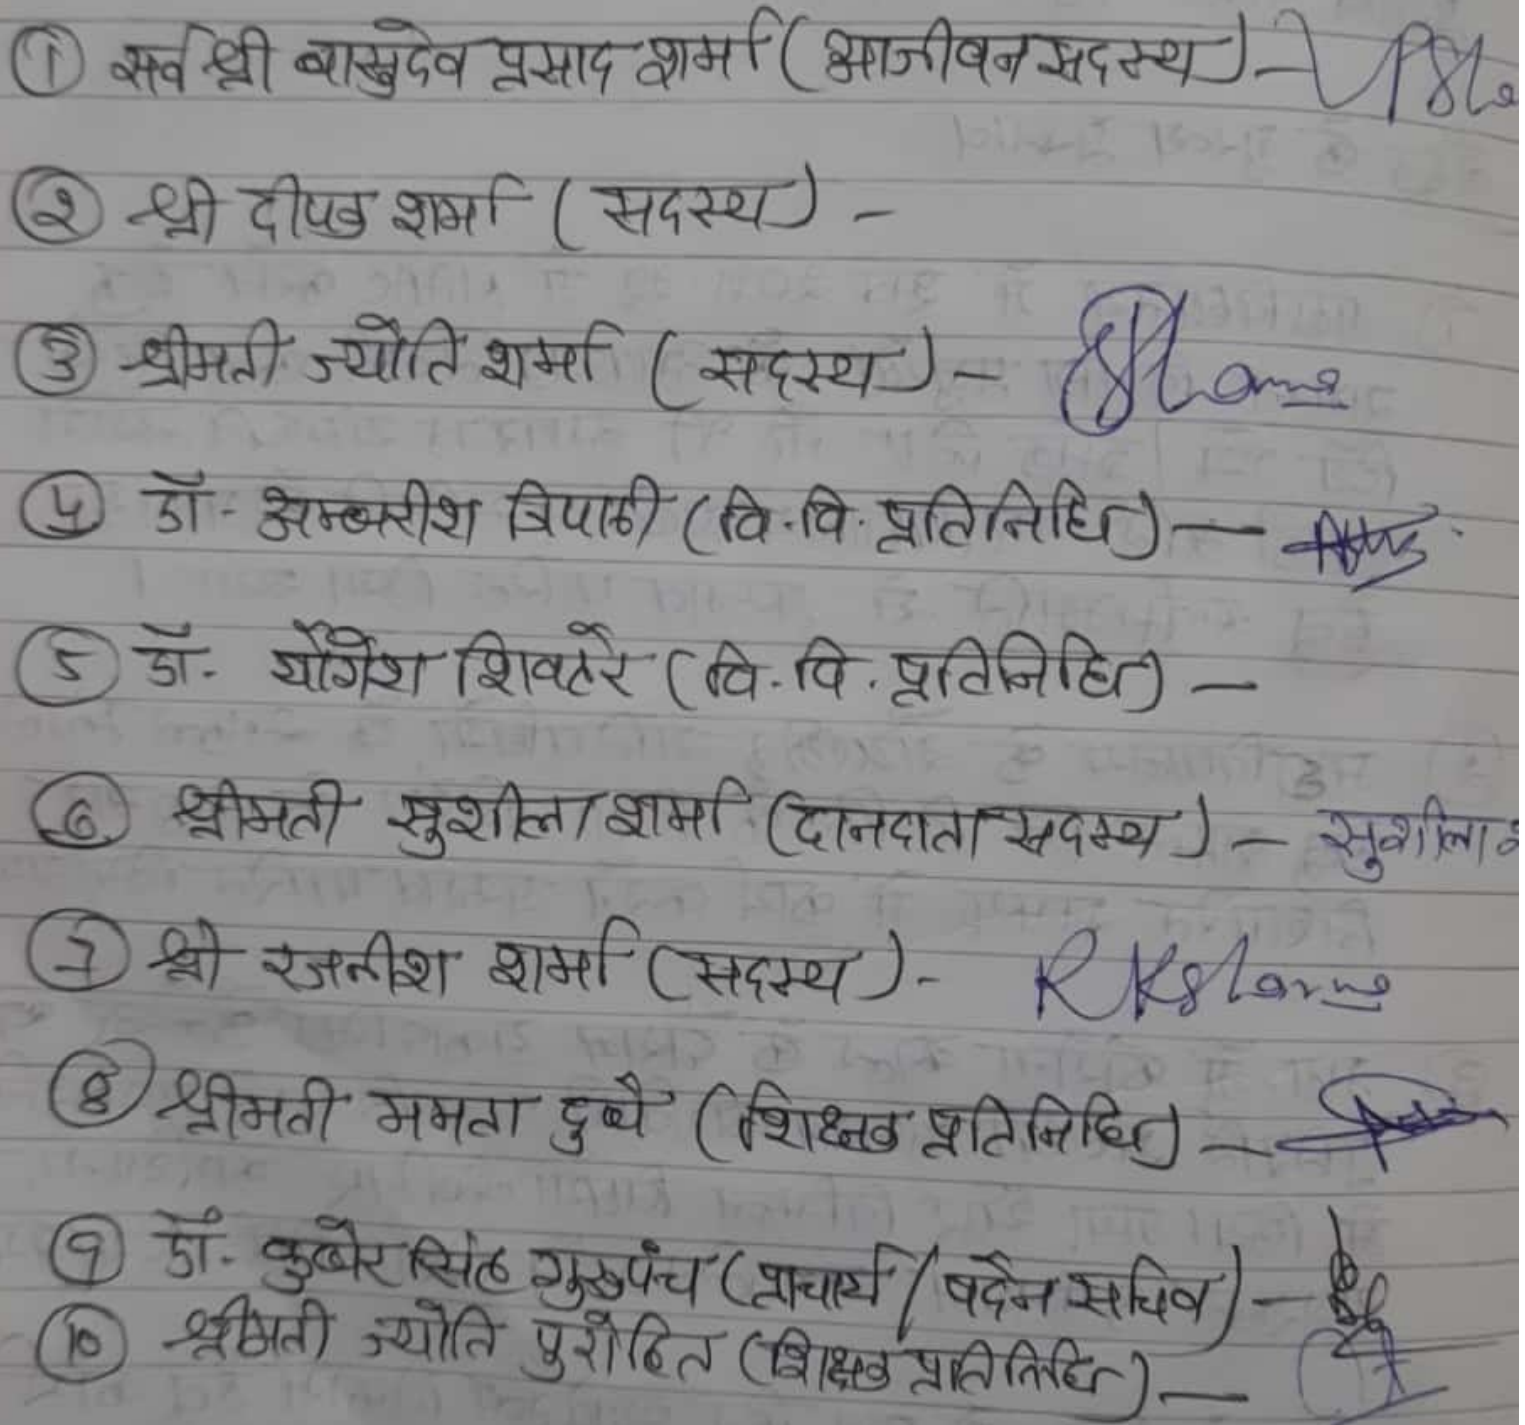 ① सर्व श्री वासुदेव प्रसाद शर्मा (आजीवन सदस्य) -
② श्री दीपक शर्मा (सदस्य) -
③ श्रीमती ज्योति शर्मा (सदस्य) - Sharma
④ डॉ. अम्बरीश त्रिपाठी (वि.वि. प्रतिनिधि) —
⑤ डॉ. योगेश शिवहरे (वि.वि. प्रतिनिधि) —
⑥ श्रीमती सुशीला शर्मा (दानदाता सदस्य) - सुशीला
⑦ श्री रजनीश शर्मा (सदस्य) - RKSharma
⑧ श्रीमती ममता दुबे (शिक्षक प्रतिनिधि) —
⑨ डॉ. कुबेर सिंह गुरुपंच (प्राचार्य / पदेन सचिव) —
⑩ श्रीमती ज्योति पुरोहित (शिक्षक प्रतिनिधि) —